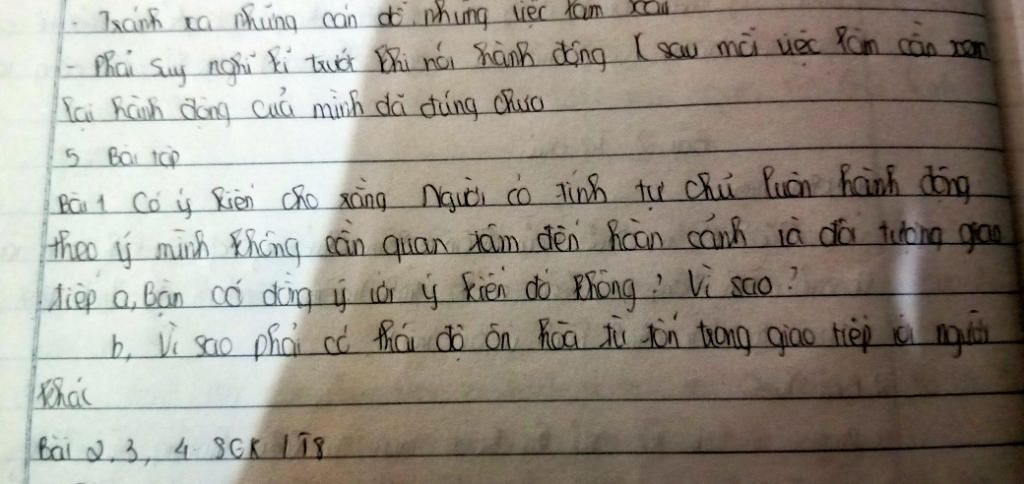 - Tránh xa những cán dỗ những việc làm xấu
- Phải suy nghĩ kĩ trước khi nói hành động ( sau mỗi việc làm cần xem
lại hành động cuả mình đã đúng chưa
5 Bài tập
Bài 1 Có ý kiến cho rằng Người có tính tự chủ luôn hành động
theo ý mình không cần quan tâm đến hoàn cảnh và đối tượng giao
tiếp a, Bạn có đồng ý với ý kiến đó không? Vì sao?
b, Vì sao phải có thái độ ôn hòa từ tốn trong giao tiếp với người
khác
Bài 2, 3, 4 SGK / T8